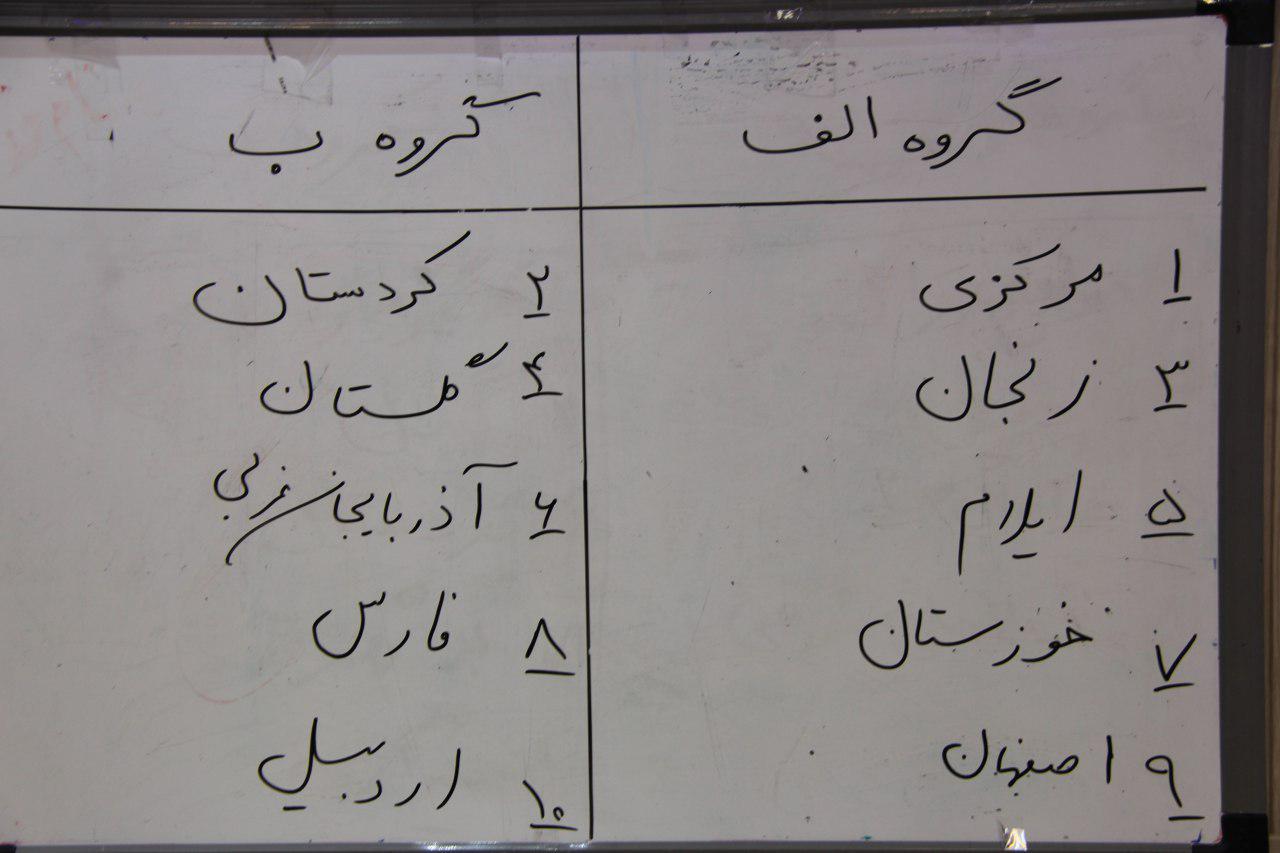 گروه الف
گروه ب
۱ مرکزی
۲ کردستان
۳ زنجان
۴ گلستان
۵ ایلام
۶ آذربایجان غربی
۷ خوزستان
۸ فارس
۹ اصفهان
۱۰ اردبیل